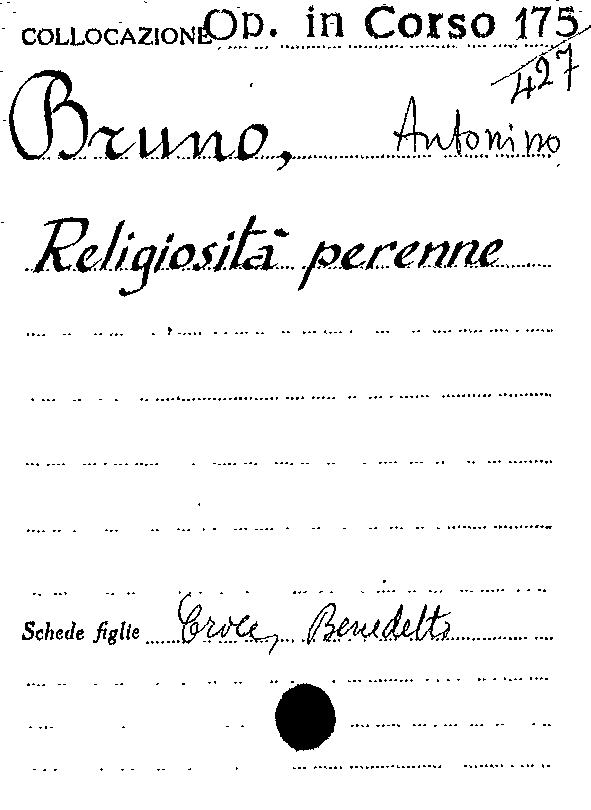 COLLOCAZIONE Op. in Corso 175
427
Bruno, Antonino
Religiosità perenne
Schede figlie Croce, Benedetto